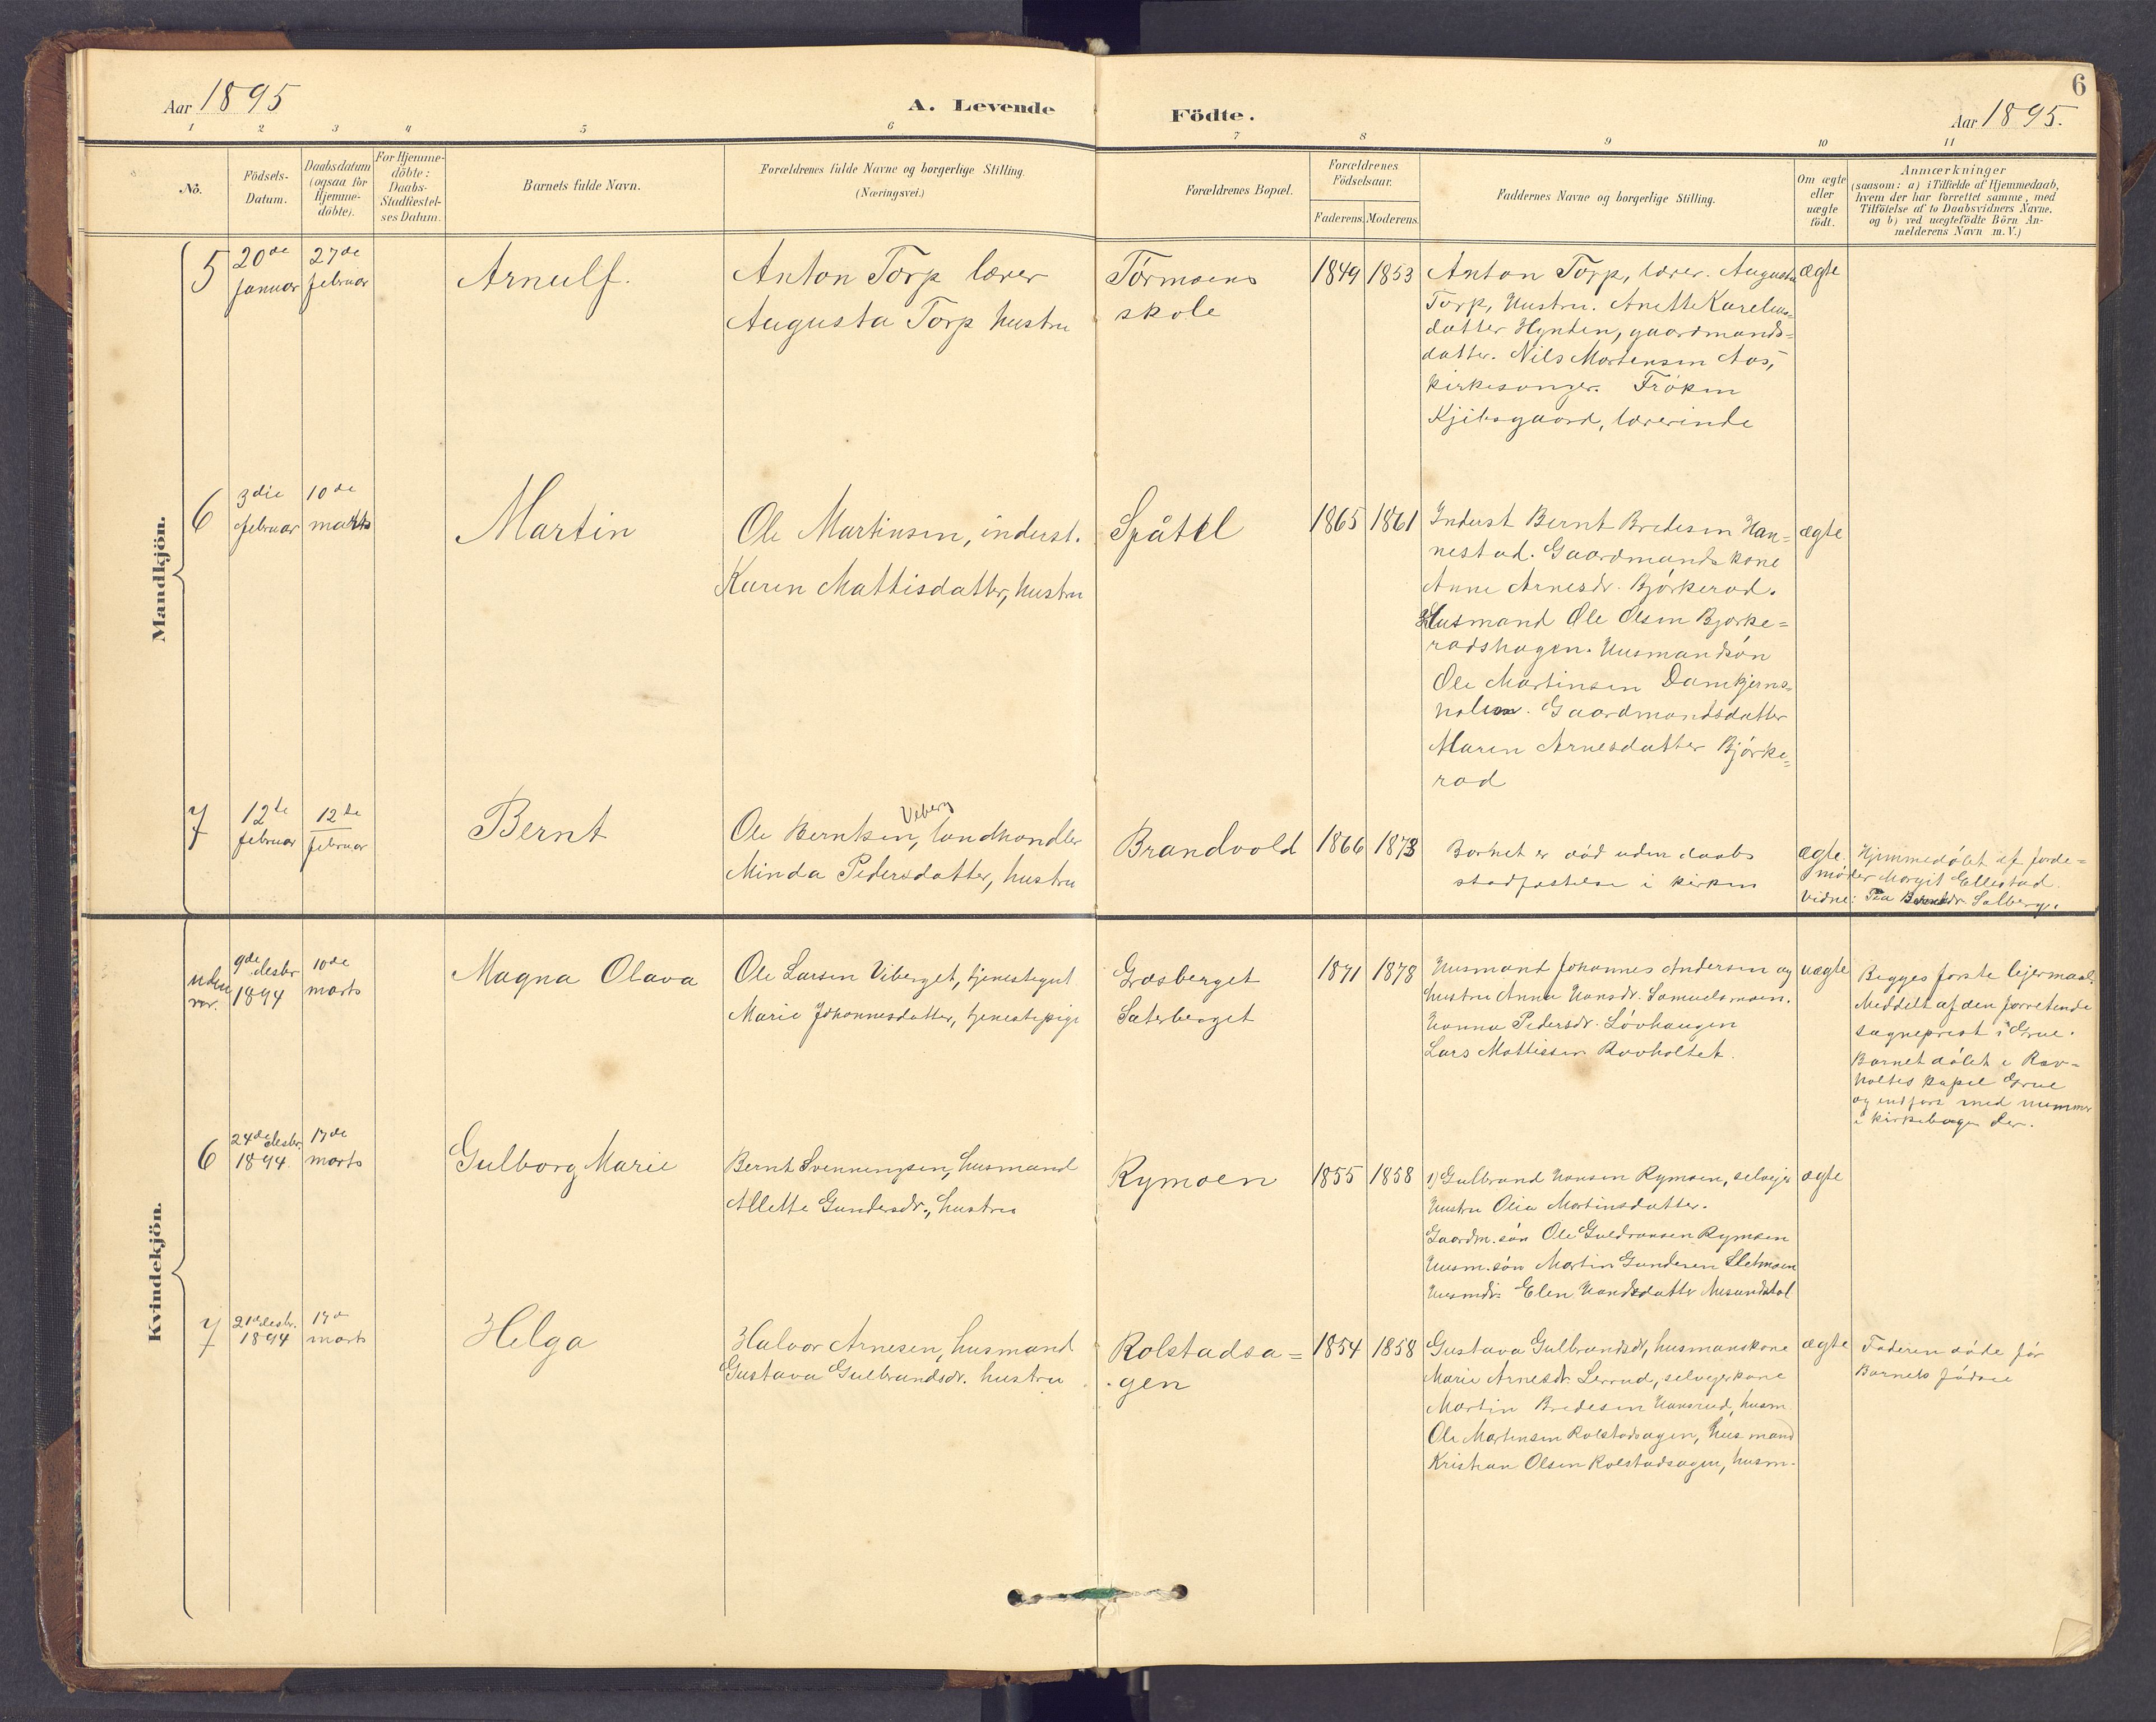 6
Aar 1895
A. Levende
Födte.
Aar 1895.
1 2 3 4 5 6 7 8 9 10 11
No.
Födsels-
Datum.
Daabsdatum
(ogsaa for
Hjemme-
döbte).
For Hjemme-
döbte:
Daabs-
Stadfæstel-
ses Datum.
Barnets fulde Navn.
Forældrenes fulde Navne og borgerlige Stilling.
(Næringsvei.)
Forældrenes Bopæl.
Forældrenes
Födselsaar.
Faderens. Moderens.
Faddernes Navne og borgerlige Stilling.
Om ægte
eller
uægte
födt.
Anmærkninger
(saasom: a) i Tilfælde af Hjemmedaab,
hvem der har forrettet samme, med
Tilföielse af to Daabsvidners Navne,
og b) ved uægtefödte Börn An-
melderens Navn m. V.)
Mandkjön.
5
20de
januar
27de
februar
Arnulf.
Anton Torp lærer
Augusta Torp hustru
Tórmoens
skole
1849
1853
Anton Torp, lærer. Augusta
Torp, Hustru. Anette Karelius-
datter Hynden, gaardmands-
datter. Nils Mortensen Aas,
kirkesanger. Frøken
Kjilsgaard, lærerinde
ægte
6
3die
februar
10de
marts
Martin
Ole Martinsen, inderst.
Karen Mattisdatter, hustru
Spåtél
1865
1861
Inderst Bernt Bredesen Han-
nestad. Gaardmandskone
Anne Arnesdr. Björkerad.
Husmand Ole Olsen Bjørke-
radshagen. Husmandsön
Ole Martinsen Damkjerns-
holen. Gaardmandsdatter
Maren Arnesdatter Björke-
rad
ægte
7
12te
februar
12te
februar
Bernt
Ole Berntsen, Viberg landhandler
Minda Pedersdatter, hustru
Brandvold
1866
1873
Barnet er död uden daabs
stadfæstelse i kirken
ægte.
Hjemmedöbt af jorde=
möder Margit Ellestad.
Vidne: Solberg.
Kvindekjön.
uden
nr.
9de desbr
1894
10de
marts
Magna Olava
Ole Larsen Viberget, tjenestegut
Marie Johannesdatter, tjenestepige
Græsberget
Sæterberget
1871
1878
Husmand Johannes Andersen og
hustru Anna Hansdr. Samuelsmoen.
Hanna Pedersdr. Lövhaugen
Lars Mattissen Rovholtet.
uægte
Begges første lejermaal.
Meddelt af den forrettende
sogneprest i Grue.
Barnet döbt i Rov-
holtes kapel Grue
og indført med nummer
i kirkebogen der.
6
24de desbr.
1894.
17de
marts
Gulborg Marie
Bernt Svenningsen, husmand
Allette Gundersdr., hustru
Rymoen
1855
1858
1) Gulbrand Hansen Rymoen, selvejer
Hustru Olia Martinsdatter.
Gaardm.sön Ole Guldransen Rymoen
Husm.sön Martin Gundersen Sletmoen
Husmdr. Elen Handsdatter
ægte
7
21de desbr.
1894
17de
marts
Helga
Halvor Arnesen, husmand
Gustava Gulbrandsdr. hustru
Rolstadsa=
gen
1854
1858
Gustava Gulbrandsdr, husmanskone
Marie Arnesdr. Lerrud, selvejerkone
Martin Bredesen Hansrud, husm.
Ole Martinsen Rolstadsagen, husmand
Kristian Olsen Rolstadsagen, husm.
ægte
Faderen döde för
Barnets födsel